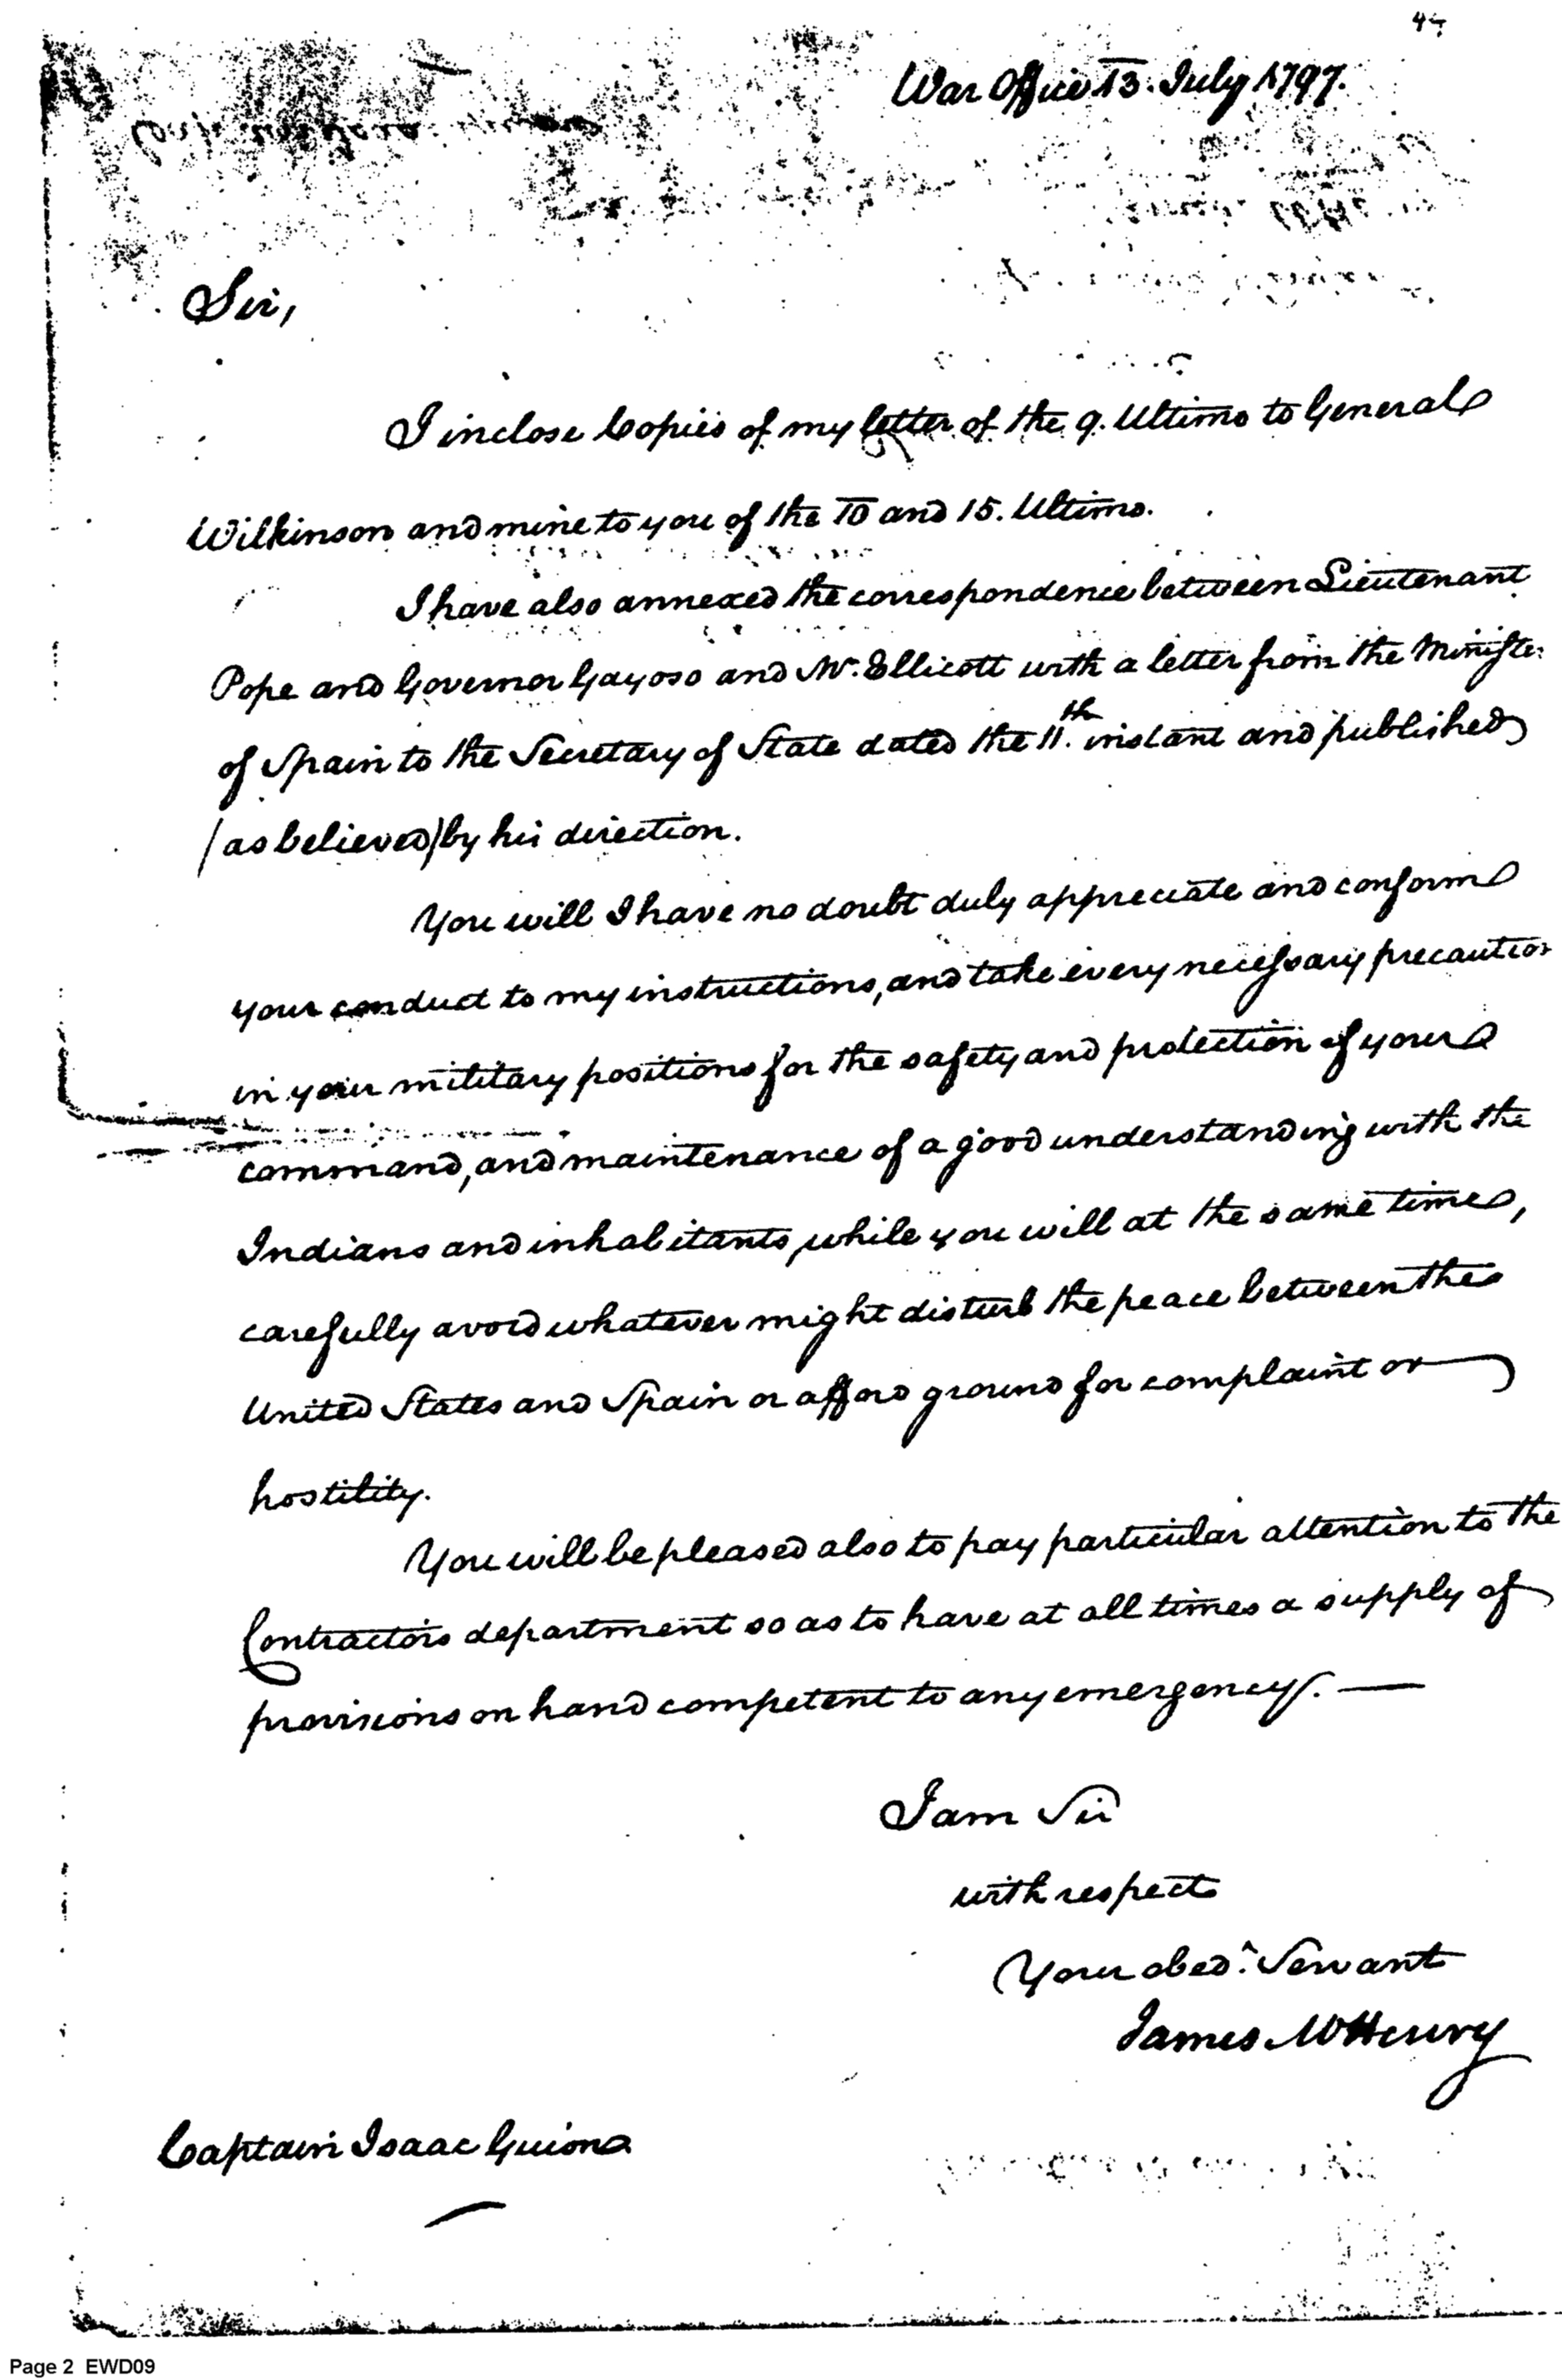 War Office 13. July 1797.
Sir,
I inclose Copies of my letter of the 9. Ultimo to General
Wilkinson and mine to you of the 10 and 15. Ultimo.
I have also annexed the correspondence between Lieutenant
Pope and Governor Gayoso and Mr. Ellicott with a letter from the Minister
of Spain to the Secretary of State dated the 11.th instant and published
(as believed) by his direction.
You will I have no doubt duly appreciate and conform
your conduct to my instructions, and take every necessary precaution
in your military positions for the safety and protection of your
command, and maintenance of a good understanding with the
Indians and inhabitants, while you will at the same time,
carefully avoid whatever might disturb the peace between the
United States and Spain or afford ground for complaint or
hostility.
You will be pleased also to pay particular attention to the
Contractors department so as to have at all times a supply of
provisions on hand competent to any emergency. —
I am Sir
with respect
Your obed.t Servant
James McHenry
Captain Isaac Guion
Page 2 EWD09